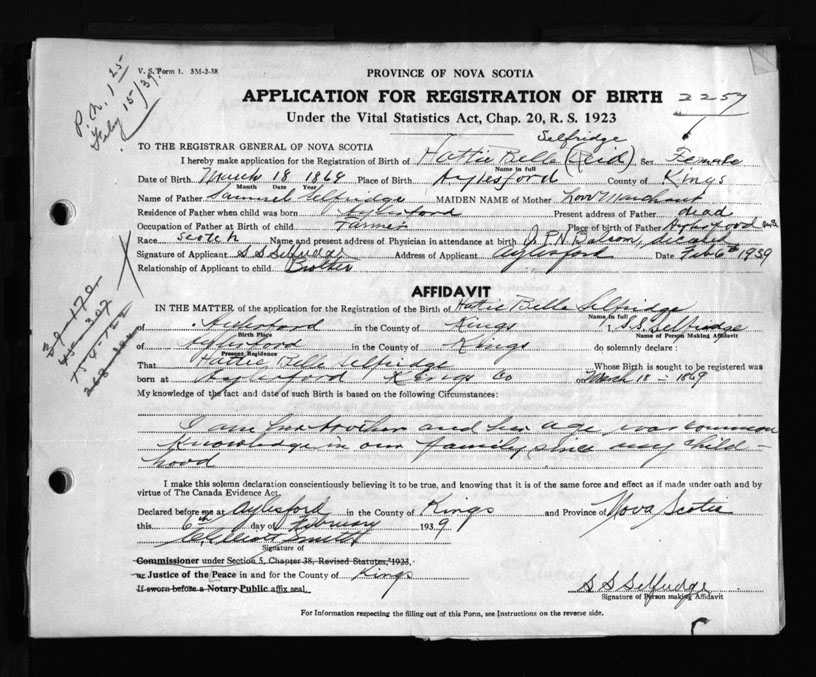 V. S. Form 1. 551-2-38
P.A. 1 25
Feby 15/39.
PROVINCE OF NOVA SCOTIA
APPLICATION FOR REGISTRATION OF BIRTH 2257
Under the Vital Statistics Act, Chap. 20, R. S. 1923
Selfridge
TO THE REGISTRAR GENERAL OF NOVA SCOTIA
I hereby make application for the Registration of Birth of Hattie Belle (Reid) Sex Female
Name in full
Date of Birth March 18 1869 Place of Birth Aylesford County of Kings
Month Date Year
Name of Father Samuel Selfridge MAIDEN NAME of Mother
Residence of Father when child was born Aylesford Present address of Father dead
Occupation of Father at Birth of child Farmer Place of birth of Father Aylesford
Race Scotch Name and present address of Physician in attendance at birth J. P. N. Balcom,
Signature of Applicant S S Selfridge Address of Applicant Aylesford Date Feb 6th 1939
Relationship of Applicant to child Brother
AFFIDAVIT
IN THE MATTER of the application for the Registration of the Birth of Hattie Belle Selfridge
Name in full
of Aylesford in the County of Kings I, S.S. Selfridge
Birth Place Name of Person Making Affidavit
of Aylesford in the County of Kings do solemnly declare:
Present Residence
That Hattie Belle Selfridge Whose Birth is sought to be registered was
born at Aylesford Kings Co on March 18 - 1869
My knowledge of the fact and date of such Birth is based on the following Circumstances:
I am her brother and her age was common
knowledge in our family since my child-
hood
I make this solemn declaration conscientiously believing it to be true, and knowing that it is of the same force and effect as if made under oath and by
virtue of The Canada Evidence Act.
Declared before me at Aylesford in the County of Kings and Province of Nova Scotia
this 6th day of February 1939
Smith
Signature of
Commissioner under Section 5, Chapter 38, Revised Statutes, 1923,
or Justice of the Peace in and for the County of Kings
If sworn before a Notary Public affix seal.
S S Selfridge
Signature of Person making Affidavit
For Information respecting the filling out of this Form, see Instructions on the reverse side.